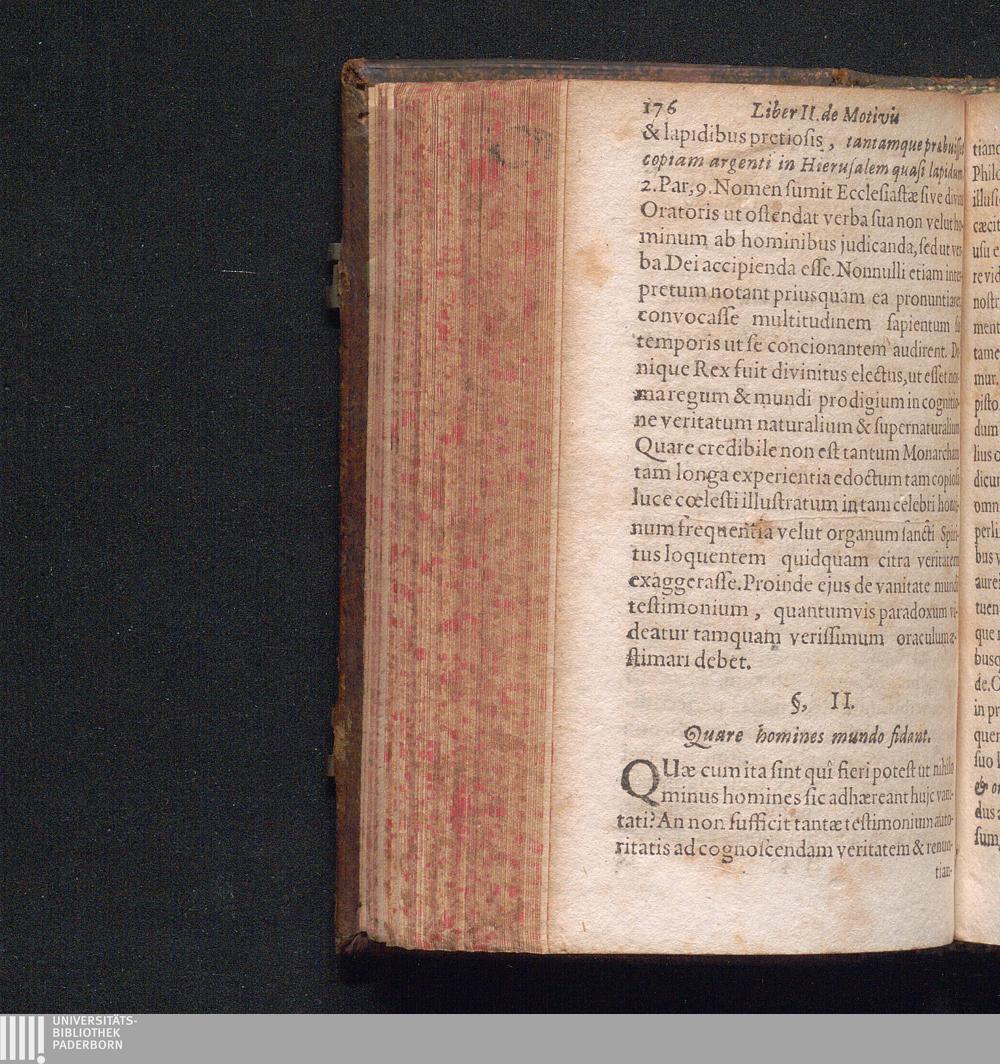 176 Liber II. de Motivis
& lapidibus pretiosis, tantamque præbuisse
copiam argenti in Hierusalem quasi lapidum
2. Par, 9. Nomen sumit Ecclesiastæ sive divini
Oratoris ut ostendat verba sua non velut ho-
minum ab hominibus judicanda, sed ut ver-
ba Dei accipienda esse. Nonnulli etiam inter-
pretum notant priusquam ea pronuntiaret
convocasse multitudinem sapientum sui
temporis ut se concionantem audirent. De-
nique Rex fuit divinitus electus, ut esset nor-
ma regum & mundi prodigium in cognitio-
ne veritatum naturalium & supernaturalium
Quare credibile non est tantum Monarcham
tam longa experientia edoctum tam copiosa
luce cœlesti illustratum in tam celebri homi-
num frequentia velut organum sancti Spiri-
tus loquentem quidquam citra veritatem
exaggerasse. Proinde ejus de vanitate mundi
testimonium, quantumvis paradoxum vi-
deatur tamquam verissimum oraculum æ-
stimari debet.
§, II.
Quare homines mundo fidant.
QUæ cum ita sint quî fieri potest ut nihilo
minus homines sic adhæreant hujc vani-
tati? An non sufficit tantæ testimonium auto-
ritatis ad cognoscendam veritatem & renun-
tian-
tiand
Philo
illusi
cæcit
usu e
re vid
nostr
ment
tame
mur.
pisto
dum
lius c
dicun
omn
perli
bus v
aurei
tuen
que i
busq
de. C
in pr
quer
suo l
& on
dus a
sum,
UNIVERSITÄTS-
BIBLIOTHEK
PADERBORN